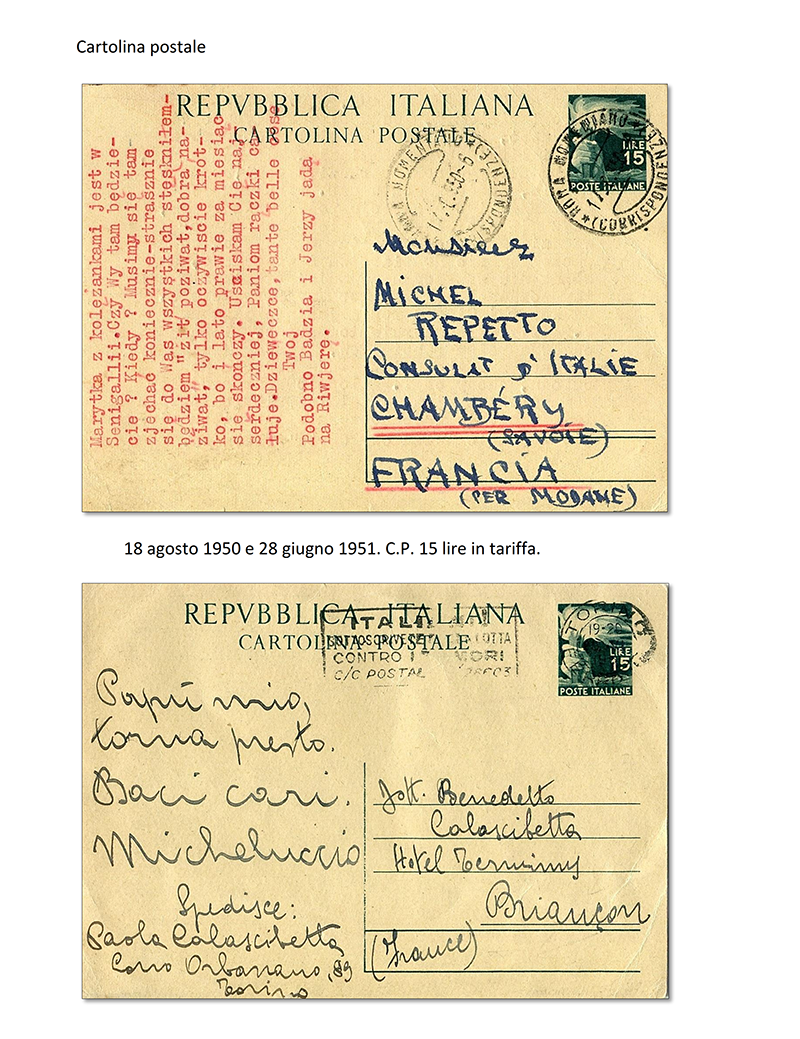 Cartolina postale
REPVBBLICA ITALIANA
CARTOLINA POSTALE
LIRE
15
POSTE ITALIANE
ROMA NOMENTANO
(CORRISPONDENZE)
Marytka z koleżankami jest w
Senigallii.Czy Wy tam będzie-
cie ? Kiedy ? Musimy się tam
zjechać koniecznie-strasznie
się do Was wszystkich stęskniłem-
będziem "zit' pożiwat,dobra na-
ziwat", tylko oczywiście krót-
ko, bo i lato prawie za miesiąc
się skończy. Usciskam Cie naj-
serdeczniej, Paniom rączki ca-
łuje.Dzieweczce,tante belle cose
Twoj
Podobno Badzia i Jerzy jadą
na Riwjerę.
Monsieur
MICHEL
REPETTO
CONSULAT D'ITALIE
CHAMBÉRY
(SAVOIE)
FRANCIA
(PER MODANE)
18 agosto 1950 e 28 giugno 1951. C.P. 15 lire in tariffa.
REPVBBLICA ITALIANA
CARTOLINA POSTALE
ITALI
SOTTOSCRIVETE LOTTA
CONTRO I ORI
C/C POSTAL
19-20
LIRE
15
POSTE ITALIANE
Papù mio,
torna presto.
Baci cari.
Micheluccio
Spedisce:
Paola Calascibetta
Corso Orbassano, 89
Torino
Dott. Benedetto
Calascibetta
Hotel Terminus
Briançon
(France)